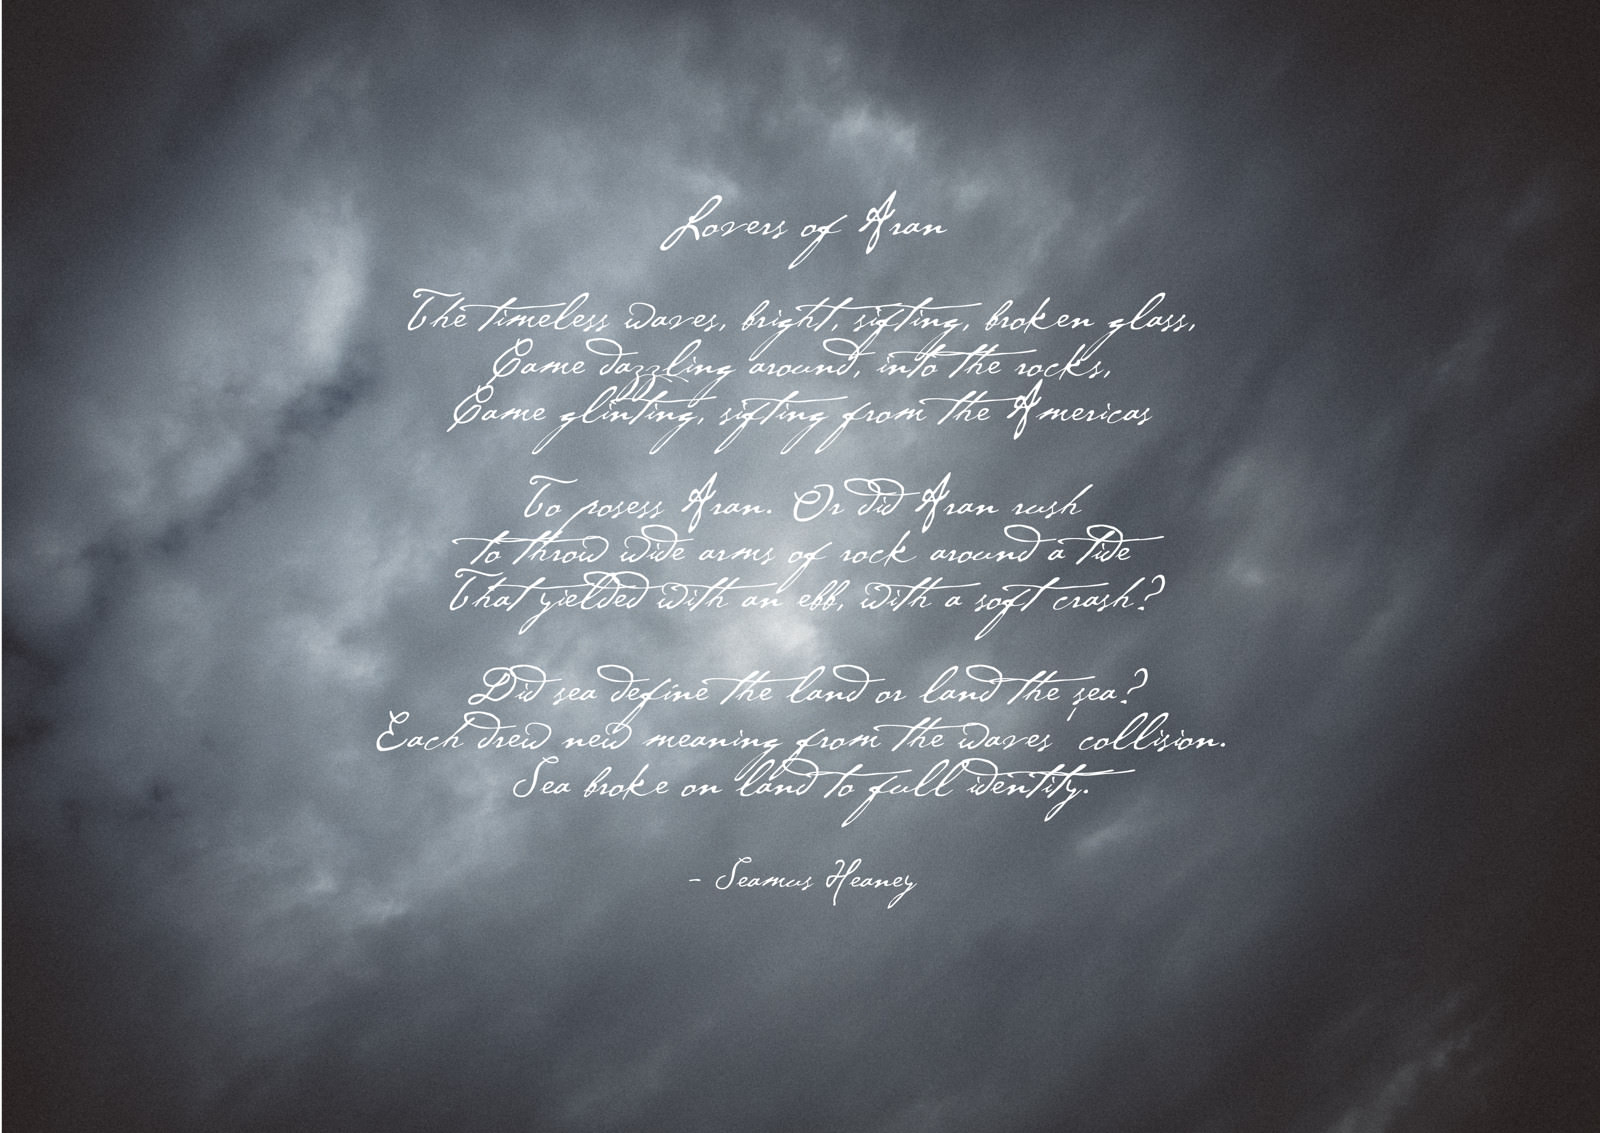 Lovers of Aran
The timeless waves, bright, sifting, broken glass,
Came dazzling around, into the rocks,
Came glinting, sifting from the Americas
To posess Aran. Or did Aran rush
to throw wide arms of rock around a tide
That yielded with an ebb, with a soft crash?
Did sea define the land or land the sea?
Each drew new meaning from the waves' collision.
Sea broke on land to full identity.
- Seamus Heaney